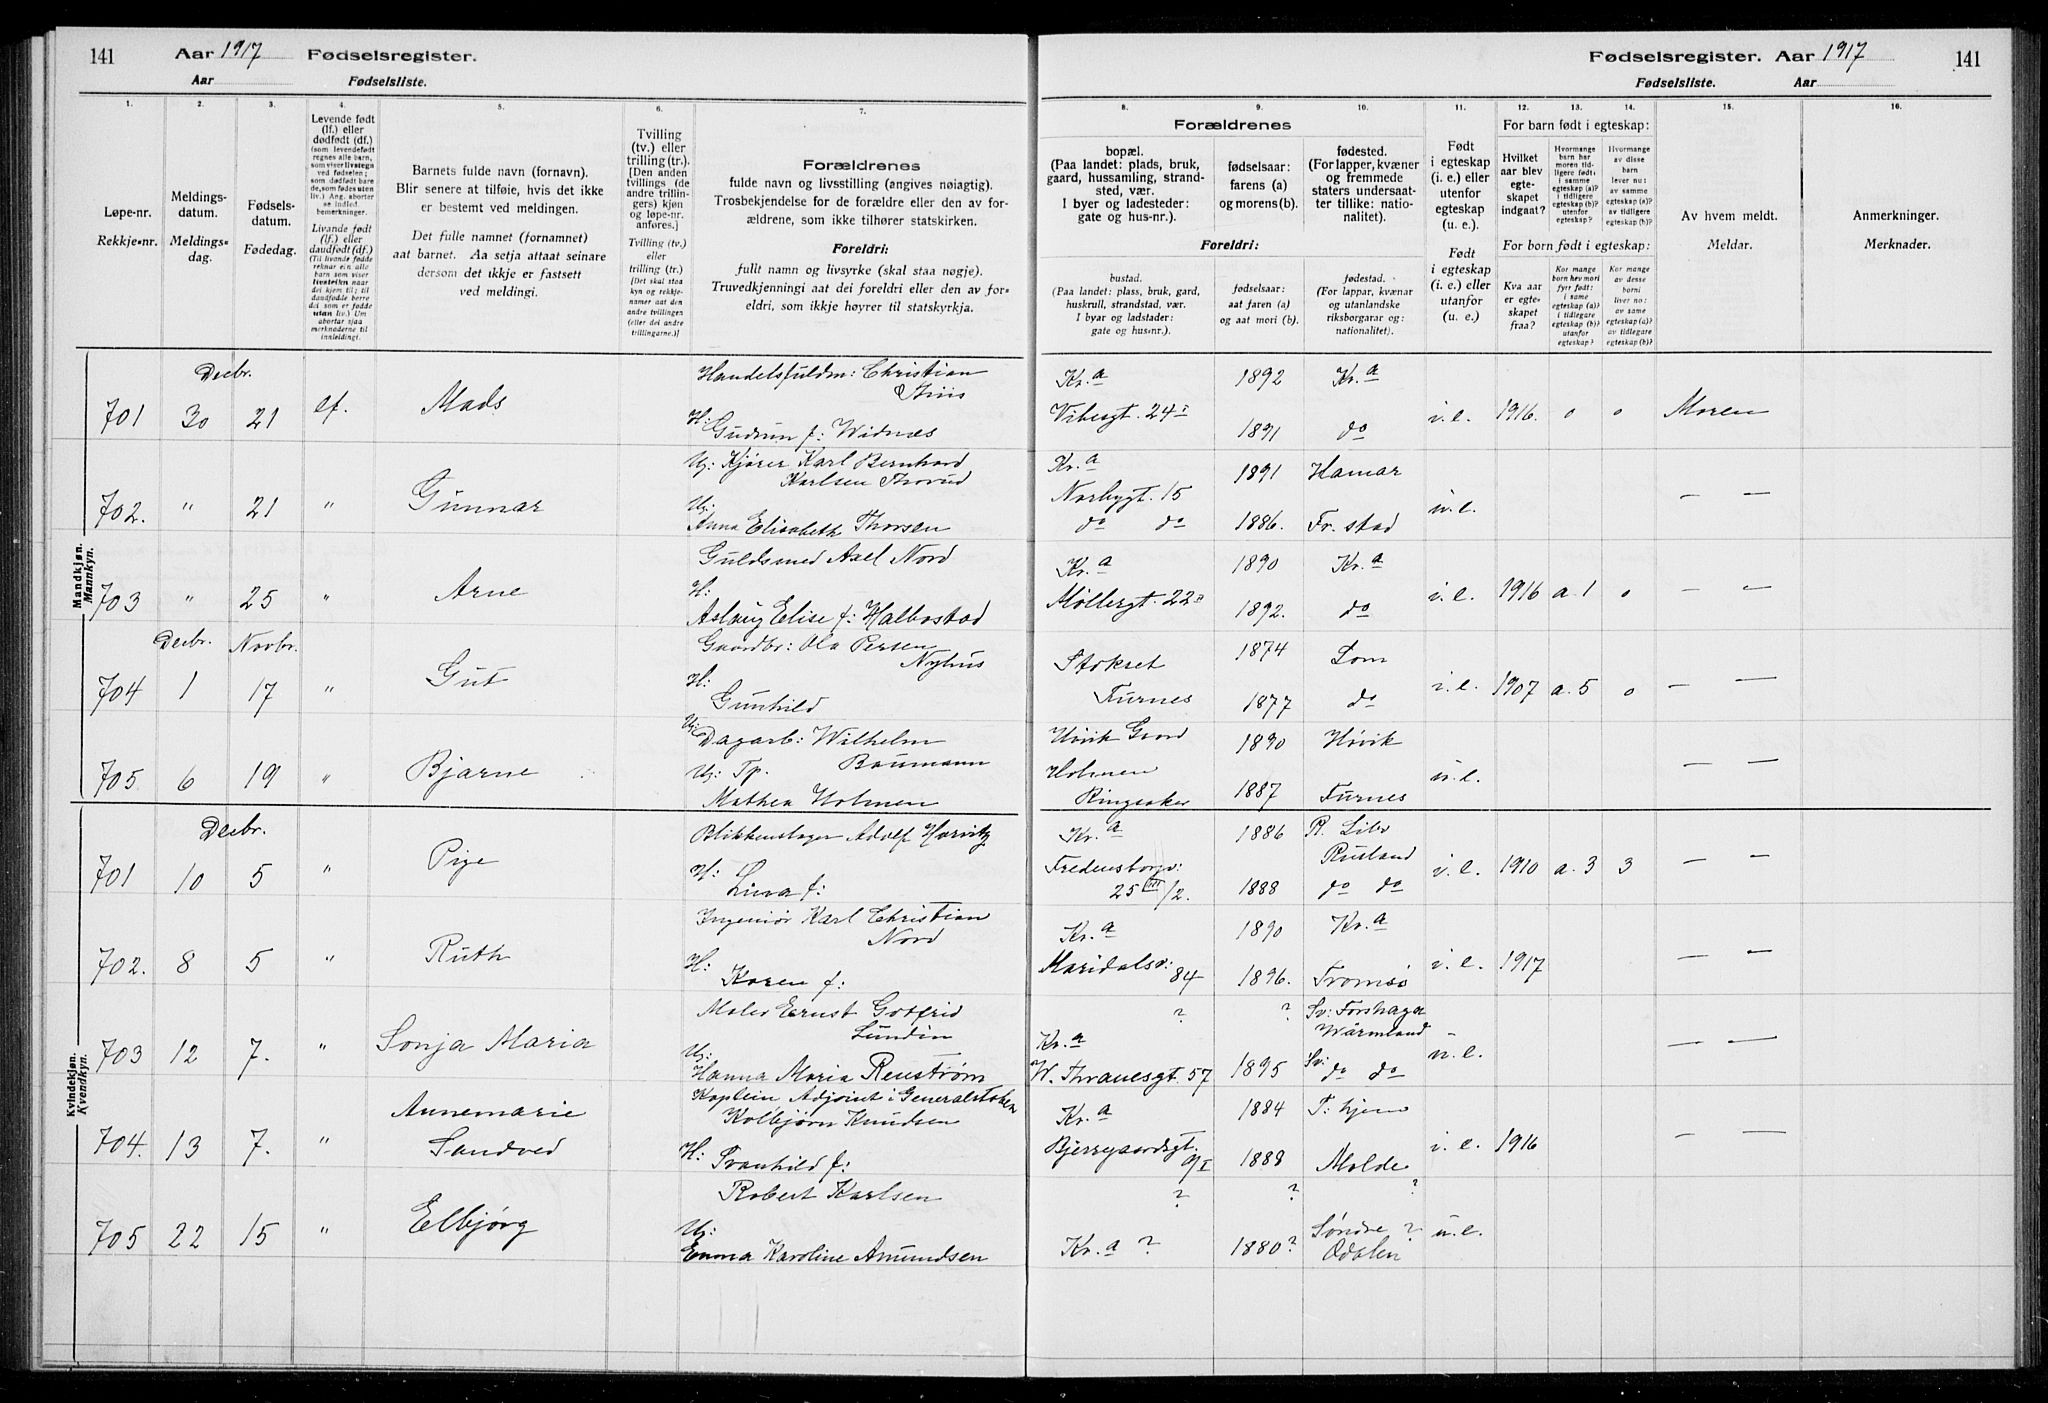 141 Aar 1917 Fødselsregister.
Aar Fødselsliste.
Fødselsregister. Aar 1917 141
Fødselsliste. Aar
1. 2. 3. 4. 5. 6. 7. 8. 9. 10. 11. 12. 13. 14. 15. 16.
Løpe-nr.
Rekkje-nr.
Meldings-
datum.
Meldings-
dag.
Fødsels-
datum.
Fødedag.
Levende født
(lf.) eller
dødfødt (df.)
(som levendefødt
regnes alle barn,
som viser livstegn
ved fødselen;
som dødfødt bare
de, som fødes uten
liv.) Ang. aborter
se indled.
bemerkninger.
Livande født
(lf.) eller
daudfødt (df.)
(Til livande fødde
reknar ein alle
barn som syner
livsteikn naar
dei kjem til; til
daudfødde berre
dei som er fødde
utan liv.) Um
abortar sjaa
merknaderne til
innleidingi.
Barnets fulde navn (fornavn).
Blir senere at tilføie, hvis det ikke
er bestemt ved meldingen.
Det fulle namnet (fornamnet)
aat barnet. Aa setja attaat seinare
dersom det ikkje er fastsett
ved meldingi.
Tvilling
(tv.) eller
trilling (tr.).
[Den anden
tvillings (de
andre trillin-
gers) kjøn
og løpe-nr.
anføres.]
Tvilling (tv.)
eller
trilling (tr.)
[Det skal staa
kyn og rekkje-
numer aat den
andre tvillingen
(eller dei andre
trillingarne.)]
Forældrenes
fulde navn og livsstilling (angives nøiagtig).
Trosbekjendelse for de forældre eller den av for-
ældrene, som ikke tilhører statskirken.
Foreldri:
fullt namn og livsyrke (skal staa nøgje).
Truvedkjenningi aat dei foreldri eller den av for-
eldri, som ikkje høyrer til statskyrkja.
Forældrenes
bopæl.
(Paa landet: plads, bruk,
gaard, hussamling, strand-
sted, vær.
I byer og ladesteder:
gate og hus-nr.).
fødselsaar:
farens (a)
og morens (b).
fødested.
(For lapper, kvæner
og fremmede
staters undersaat-
ter tillike: natio-
nalitet).
Foreldri:
bustad.
(Paa landet: plass, bruk, gard,
huskrull, strandstad, vær.
I byar og ladstader:
gate og hus-nr.).
fødselsaar:
aat faren (a)
og aat mori (b).
fødestad.
(For lappar, kvænar
og utanlandske
riksborgarar og:
nationalitet).
Født
i egteskap
(i. e.) eller
utenfor
egteskap
(u. e.).
Født
i egteskap
(i. e.) eller
utanfor
(u. e.).
For barn født i egteskap:
Hvilket
aar blev
egte-
skapet
indgaat?
Hvormange
barn har
moren tid-
ligere født:
i samme
egteskap (a)?
i tidligere
egteskap (b)?
utenfor
egteskap?
Hvormange
av disse
barn
lever nu:
av samme
egteskap (a)?
av tidligere
egteskap (b)?
For born født i egteskap:
Kva aar
er egte-
skapet
fraa?
Kor mange
born hev mori
fyrr født:
i same
egteskap (a)?
i tidlegare
egteskap (b)?
utanfor
egteskap?
Kor mange
av desse
borni
liver no:
av same
egteskap (a)?
av tidlegare
egteskap (b)?
Av hvem meldt.
Meldar.
Anmerkninger.
Merknader.
Mandkjøn.
Mannkyn.
Decbr. Handelsfuldm: Christian Kr.a 1892 Kr.a
701 30 21 lf. Mads Vibesgt. 24 I i.e. 1916. 0 0 Moren
H: Gudrun f: Widnæs 1891 do
U: Kjører Karl Bernhard Kr.a 1891 Hamar
Karlsen Thorud
702. " 21 " Gunnar Norbygt. 15 u.e. — —
U: Anna Elisabeth Thorsen do do 1886. Fr. stad
Guldsmed Axel Nord Kr.a 1890 Kr.a
703 " 25 " Arne H: Møllergt. 22 i.e. 1916 a. 1 0 — —
Aslaug Elise f: Halbostad 1892. do
Decbr. Novbr. Gaardbr: Ola Persen 1874 Lom
Nyhus
704 1 17 " Gut H: Stokset Furnes i.e. 1907 a. 5 0 — —
Gunhild 1877 do
U: Dagarb: Wilhelm Høvik Gaard 1890 Høvik
Baumann
705 6 19 " Bjarne U: Tp. Holmen u.e. — —
Mathea Holmen Ringsaker 1887 Furnes
Kvindekjøn.
Kvendkyn.
Decbr. Blikkenslager Adolf Horvitz Kr.a 1886 R.
Rusland
701 10 5 " Pige H: Fredensborgv: i.e. 1910 a. 3 3 — —
f: 25 III/2. 1888 do do
Ingeniør Karl Christian Kr.a 1890 Kr.a
Nord
702. 8 5 " Ruth H: Maridalsv: i.e. 1917 — —
Karen f: 84 1896. Tromsø
Maler Ernst Gotfrid ? ? Sv: Forshaga
Lundin Wärmland
703 12 7. " Sonja Maria U: Kr.a u.e. — —
Hanna Maria Renstrøm W. Thranesgt. 57 1895 Sv: do do
Kaptein Adjoint i Generalstaben Kr.a 1884 T: hjem
Kolbjørn Knudsen
704. 13 7. " Annemarie Sandved Bjerregaardsgt. i.e. 1916 — —
H: Ranhild f: 9 I 1888 Molde
Robert Karlsen ? ? ?
705 22 15 " Elbjørg U: Søndre ? u.e.
Emma Karoline Amundsen Kr.a ? 1880? Odalen